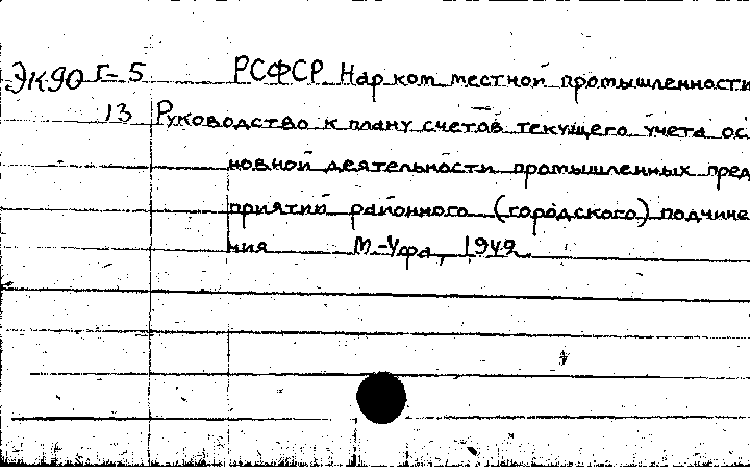 ЭК90 Г-5 РСФСР Нар ком местной промышленности
13 Руководство к плану счетов текущего учета ос
новной деятельности промышленных пред
приятий районного (городского) подчине
ния М.-Уфа, 1942.